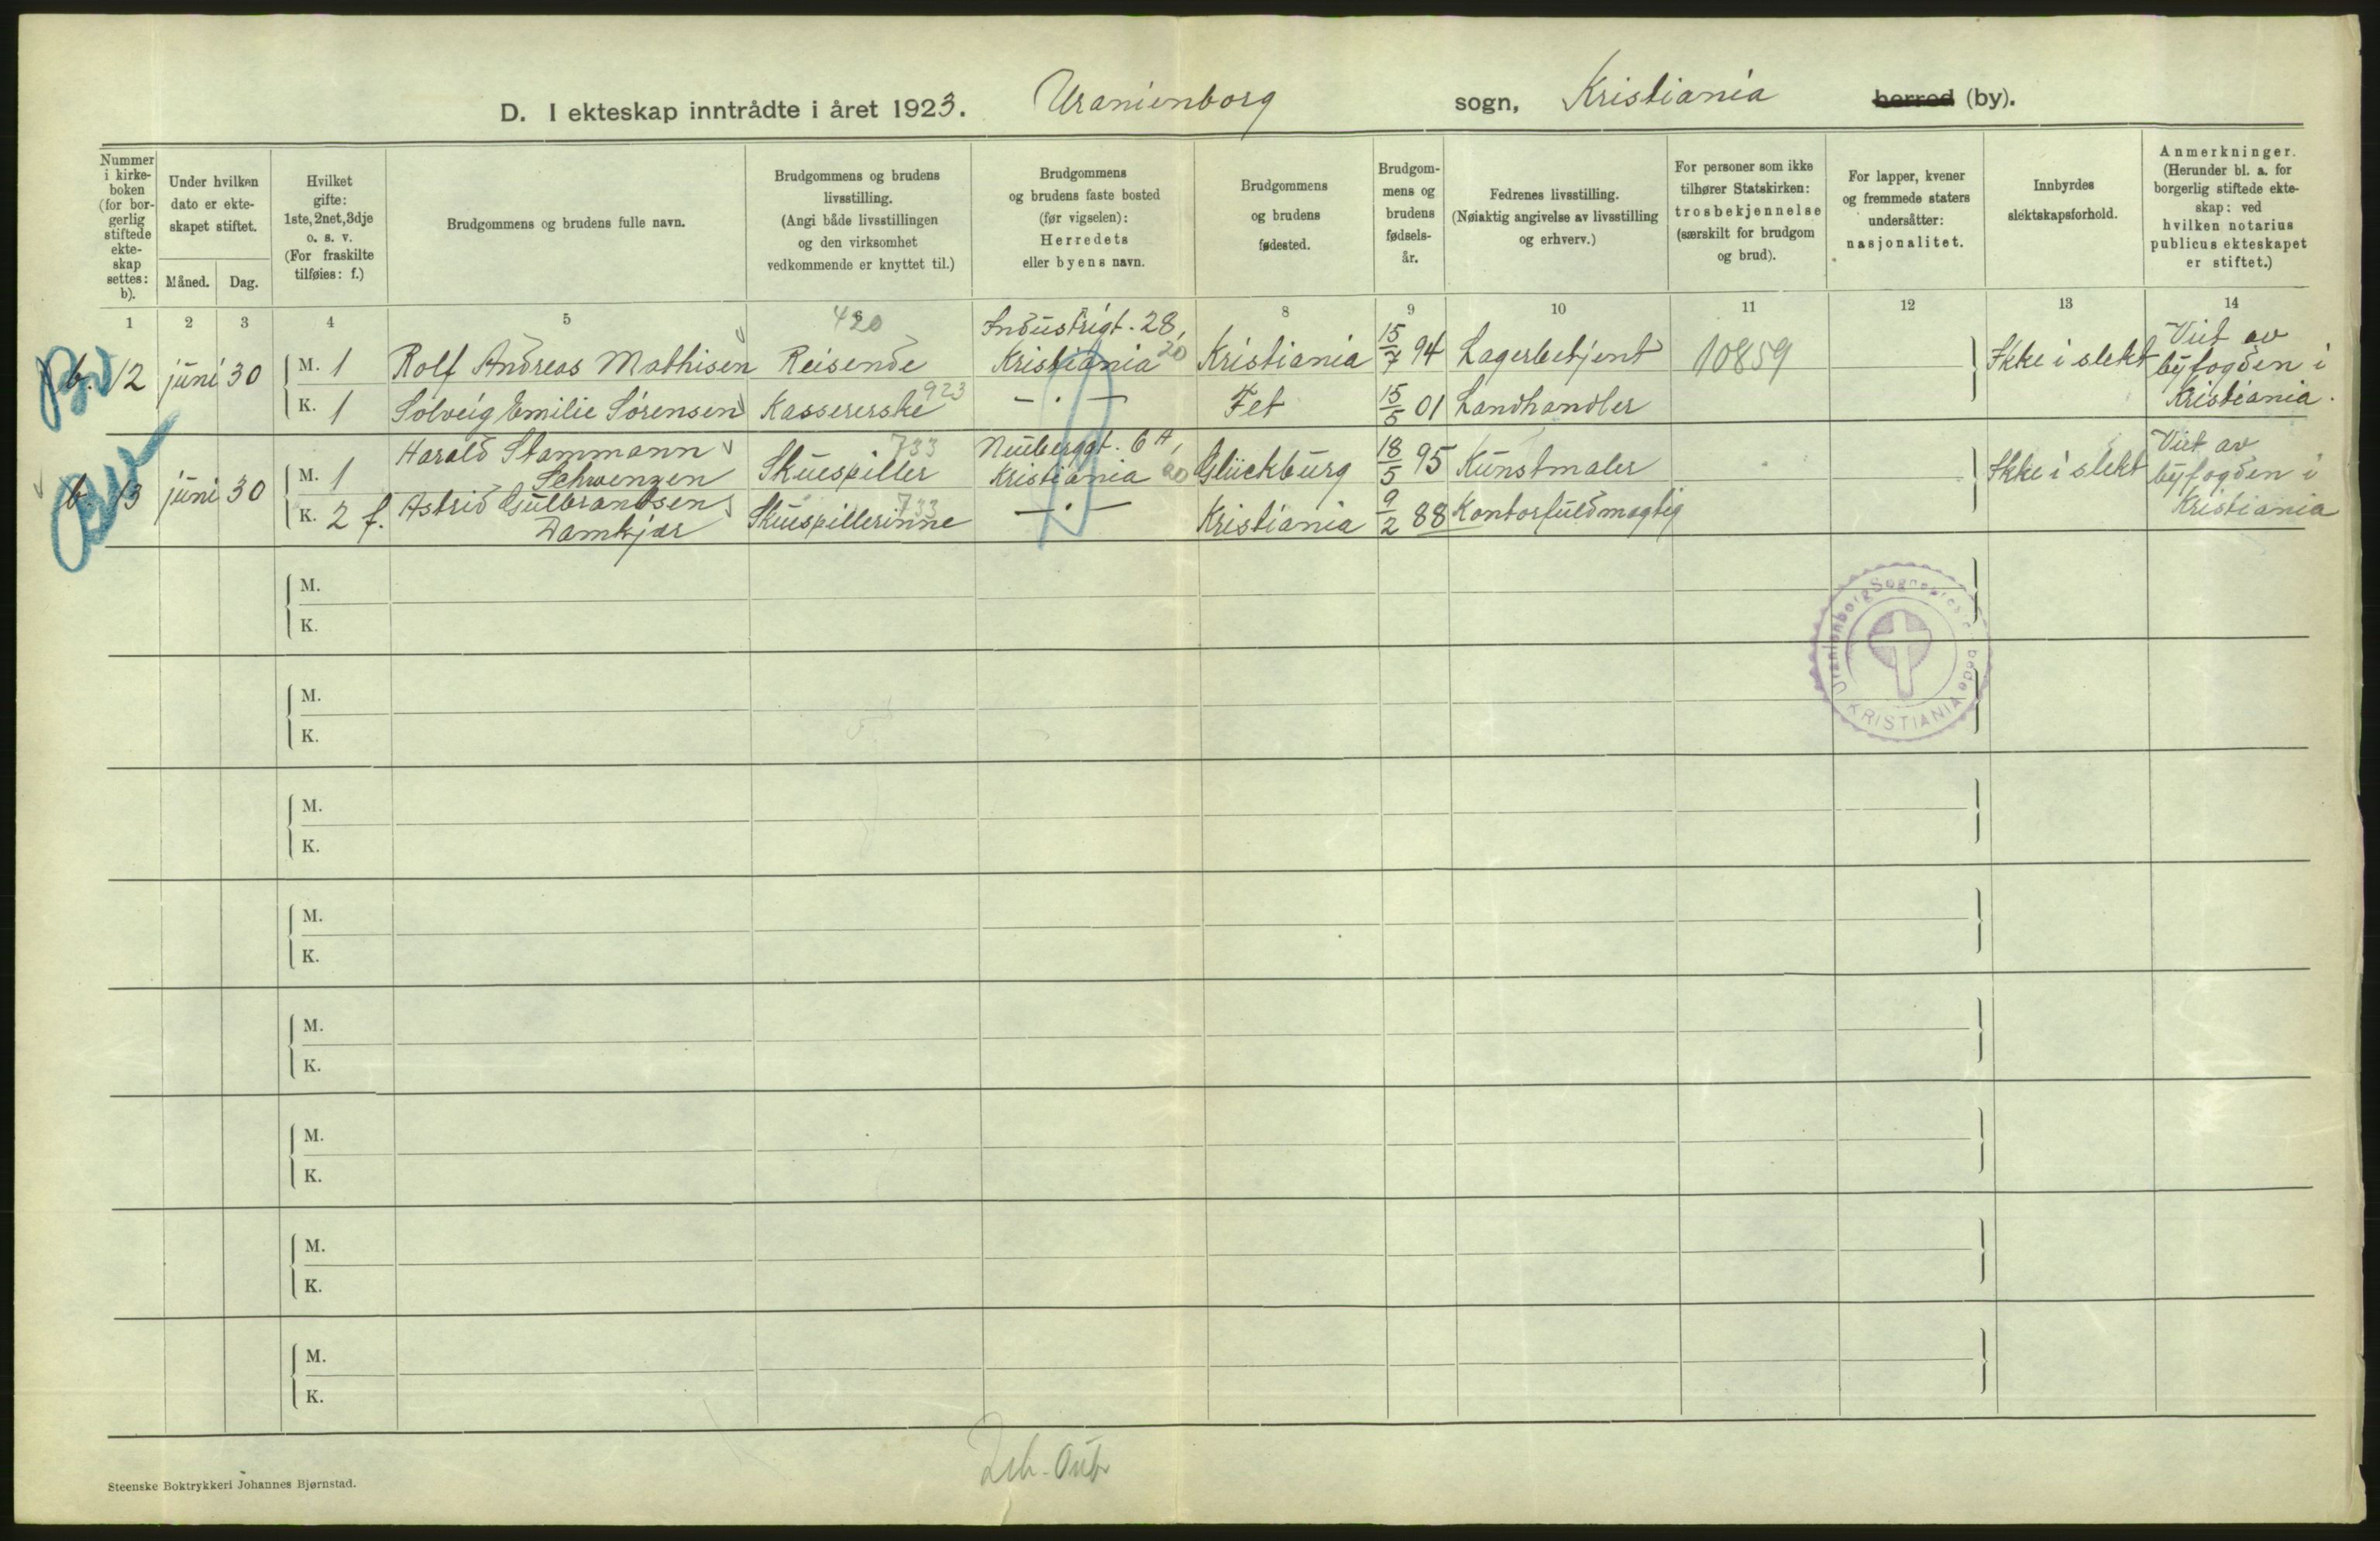 D. I ekteskap inntrådte i året 1923. Uranienborg sogn, Kristiania herred (by).
Nummer i kirke-boken (for bor-gerlig stiftede ekte-skap settes: b).
Under hvilken dato er ekte-skapet stiftet.
Måned. Dag.
Hvilket gifte: 1ste, 2net, 3dje o. s. v. (For fraskilte tilføies: f.)
Brudgommens og brudens fulle navn.
Brudgommens og brudens livsstilling. (Angi både livsstillingen og den virksomhet vedkommende er knyttet til.)
Brudgommens og brudens faste bosted (før vigselen): Herredets eller byens navn.
Brudgommens og brudens fødested.
Brudgom-mens og brudens fødsels-år.
Fedrenes livsstilling. (Nøiaktig angivelse av livsstilling og erhverv.)
For personer som ikke tilhører Statskirken: trosbekjennelse (særskilt for brudgom og brud).
For lapper, kvener og fremmede staters undersåtter: nasjonalitet.
Innbyrdes slektskapsforhold.
Anmerkninger. (Herunder bl. a. for borgerlig stiftede ekte-skap: ved hvilken notarius publicus ekteskapet er stiftet.)
1 2 3 4 5 6 8 9 10 11 12 13 14
420
b. 12 juni 30 M. 1 Rolf Andreas Mathisen Reisende Industrigt. 28, Kristiania 20 Kristiania 15/7 94 Lagerbetjent 10859 Ikke i slekt Viet av byfogden i Kristiania.
K. 1 Solveig Emilie Sørensen Kassererske 923 — · — Fet 15/5 01 Landhandler
b. 13 juni 30 M. 1 Harald Stammann Schwenzen Skuespiller 733 Neuberggt. 6A, Kristiania 20 Glückburg 18/5 95 Kunstmaler Ikke i slekt Viet av byfogden i Kristiania
K. 2 f. Astrid Gulbrandsen Damkjær Skuespillerinne 733 — · — Kristiania 9/2 88 Kontorfuldmagtig
M.
K.
Uranienborg Sogneprestembede
KRISTIANIA
M.
K.
M.
K.
M.
K.
M.
K.
M.
K.
M.
K.
M.
K.
Steenske Boktrykkeri Johannes Bjørnstad.